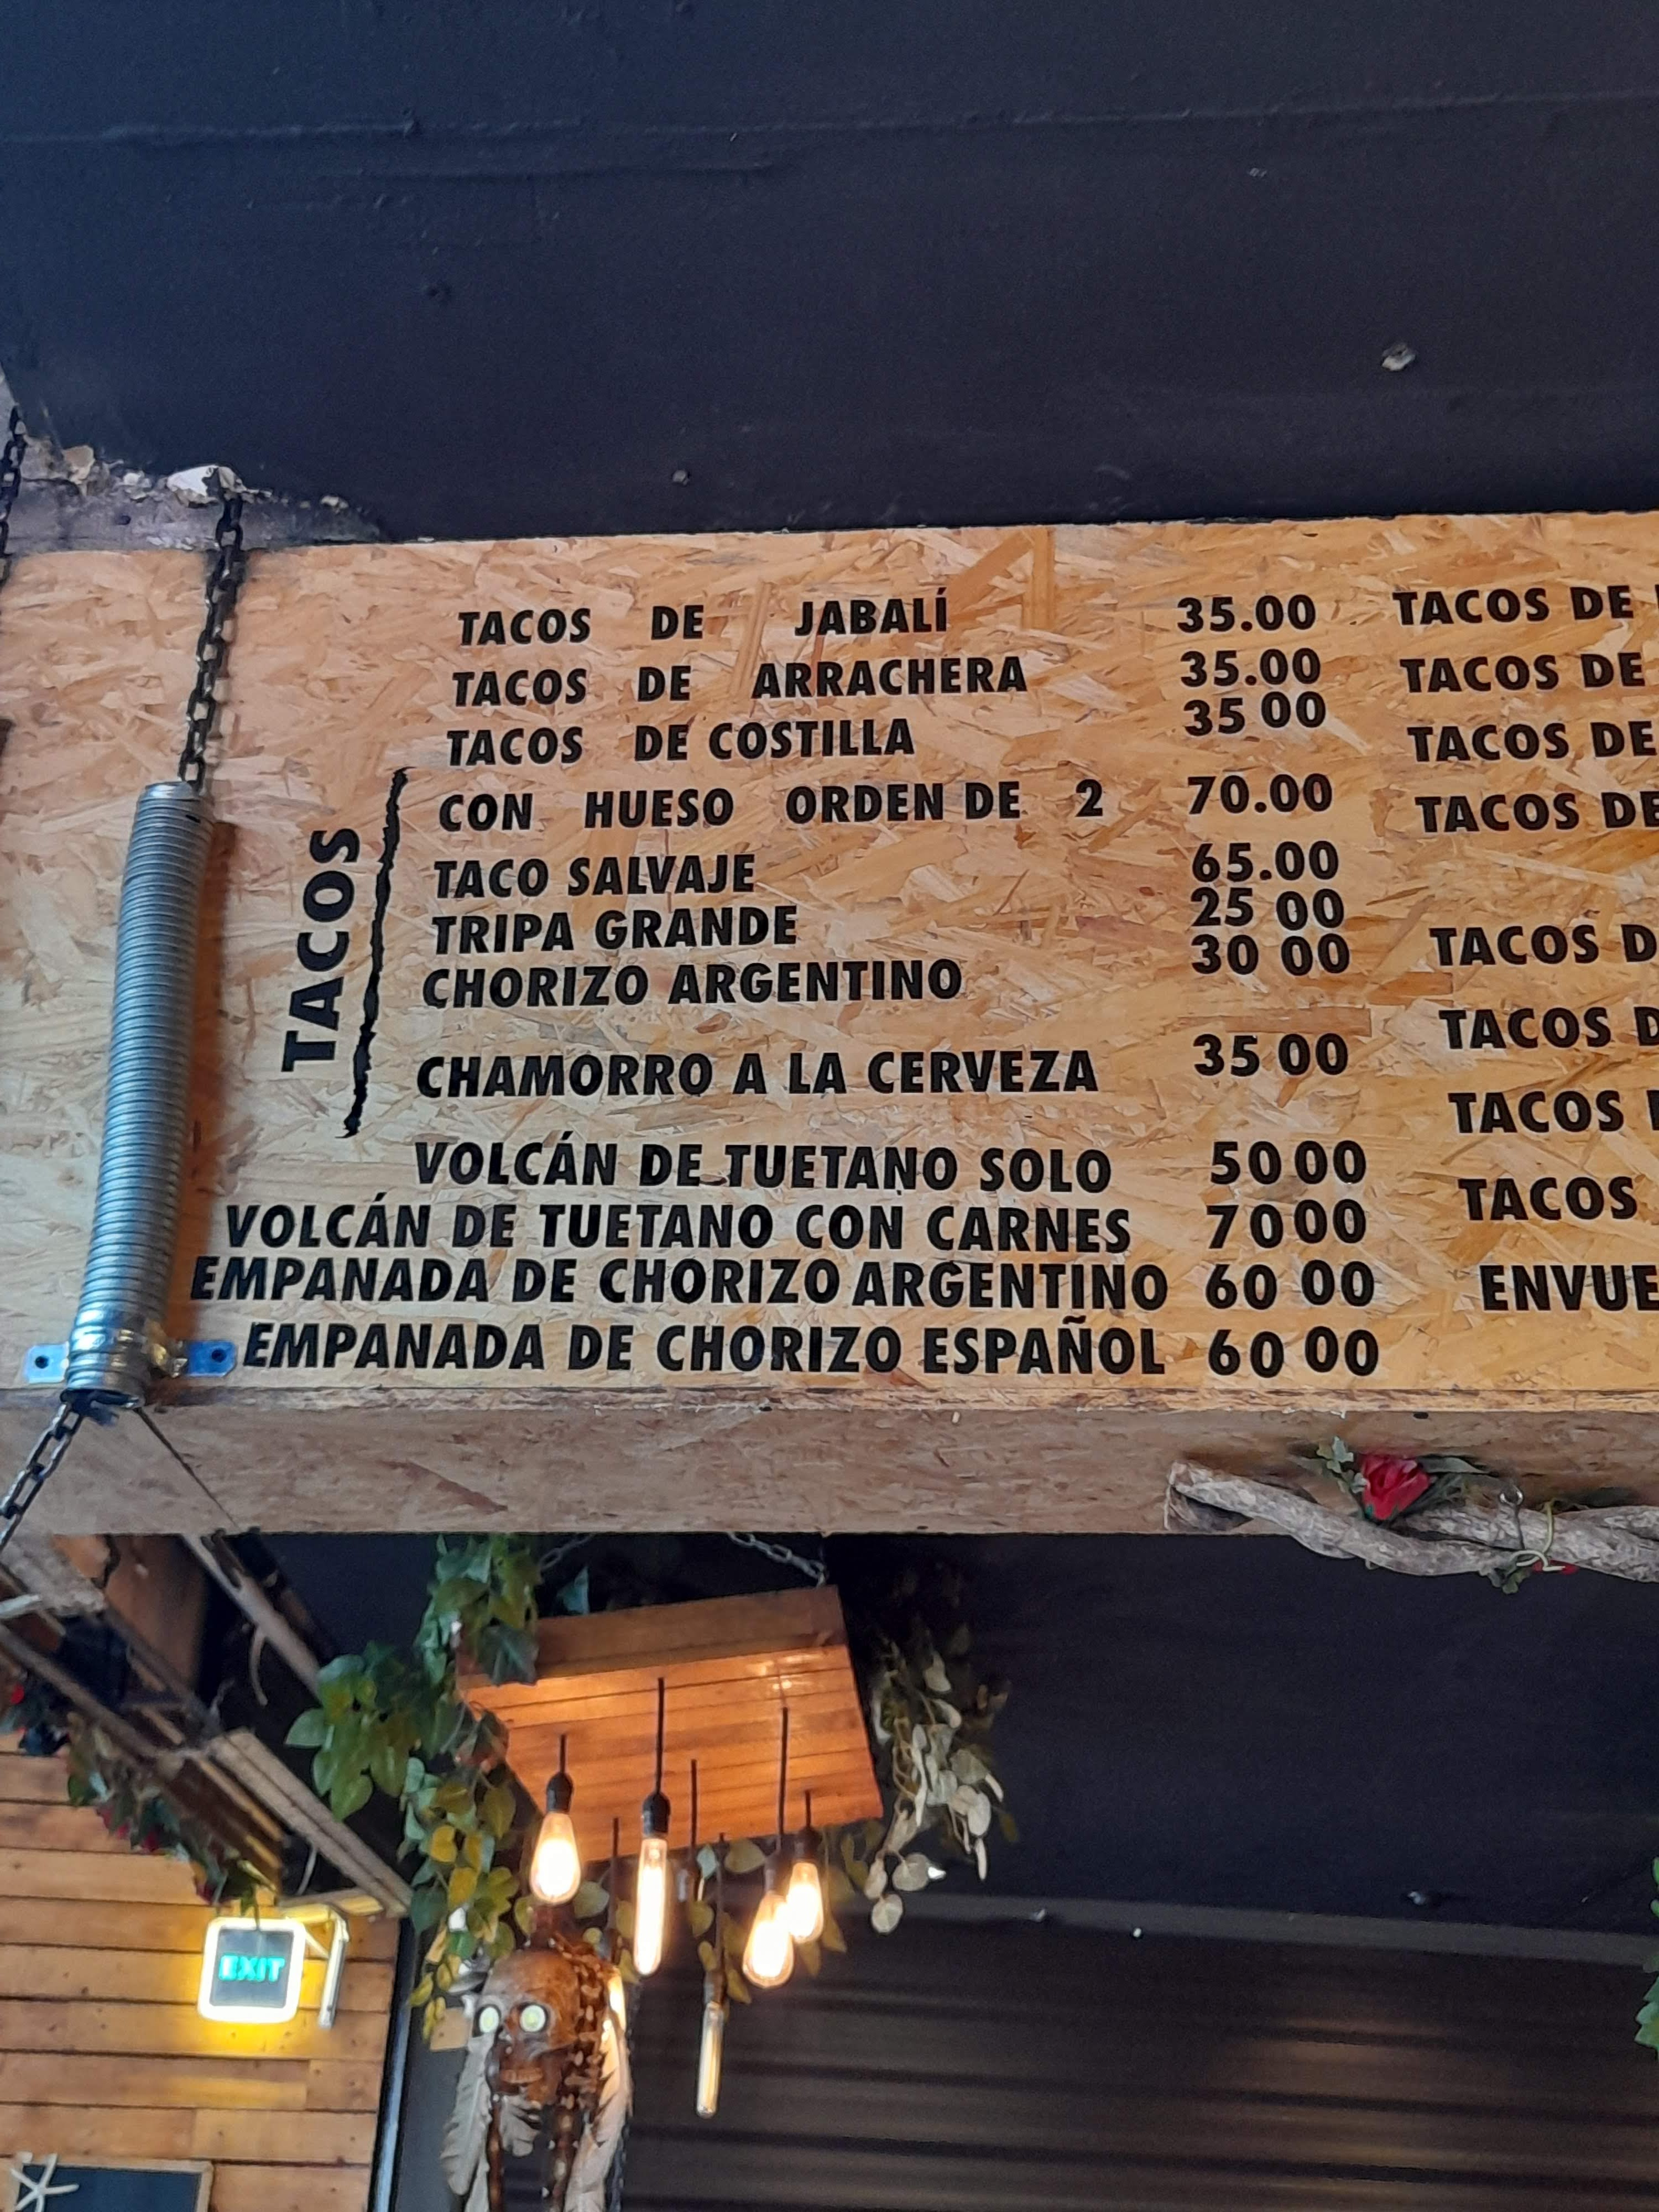 TACOS
TACOS DE JABALÍ 35.00
TACOS DE ARRACHERA 35.00
TACOS DE COSTILLA 35 00
CON HUESO ORDEN DE 2 70.00
TACO SALVAJE 65.00
TRIPA GRANDE 25 00
CHORIZO ARGENTINO 30 00
CHAMORRO A LA CERVEZA 35 00
VOLCÁN DE TUETANO SOLO 50 00
VOLCÁN DE TUETANO CON CARNES 70 00
EMPANADA DE CHORIZO ARGENTINO 60 00
EMPANADA DE CHORIZO ESPAÑOL 60 00
TACOS DE
TACOS DE
TACOS DE
TACOS DE
TACOS
TACOS
TACOS
TACOS
EXIT